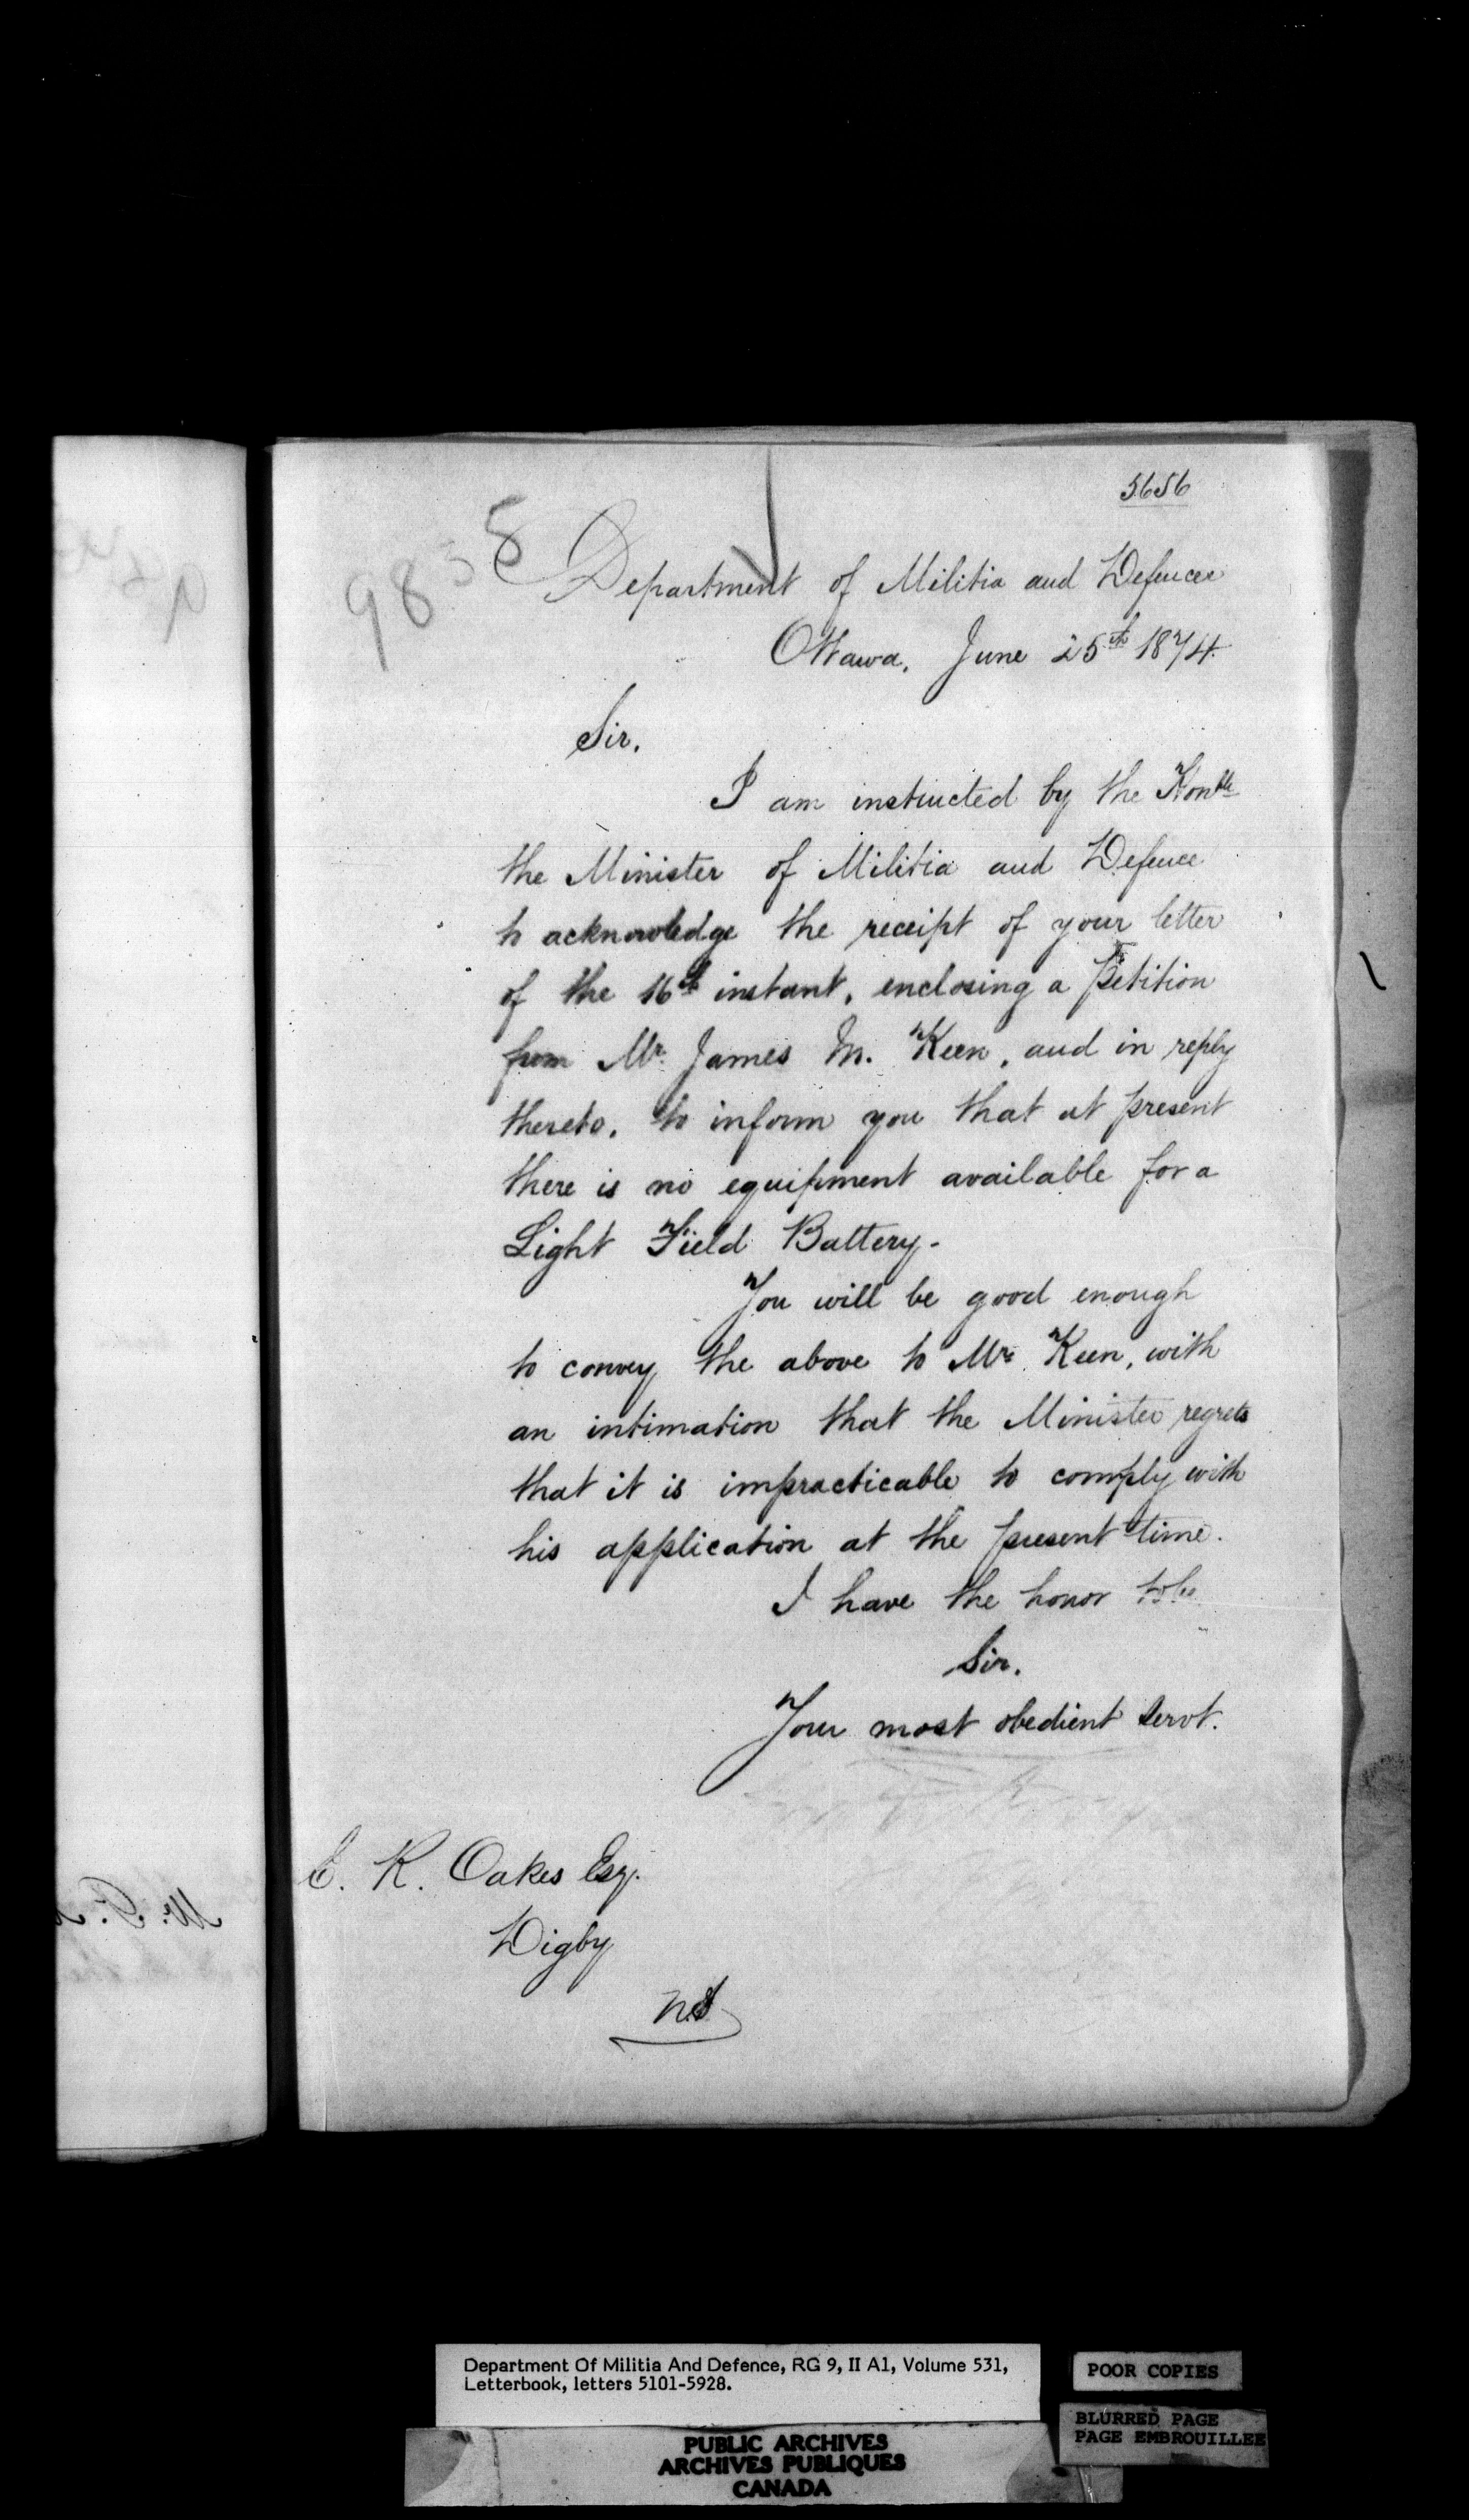 5656
9835
Department of Militia and Defence
Ottawa, June 25th 1874.
Sir,
I am instructed by the Honble
the Minister of Militia and Defence
to acknowledge the receipt of your letter
of the 16th instant, enclosing a Petition
from Mr. James M. Keen, and in reply
thereto, to inform you that at present
there is no equipment available for a
Light Field Battery.
You will be good enough
to convey the above to Mr. Keen, with
an intimation that the Minister regrets
that it is impracticable to comply with
his application at the present time.
I have the honor to be
Sir,
Your most obedient Servt.
C. K. Oakes Esq.
Digby
N.S
Department Of Militia And Defence, RG 9, II A1, Volume 531,
Letterbook, letters 5101-5928.
POOR COPIES
BLURRED PAGE
PAGE EMBROUILLEE
PUBLIC ARCHIVES
ARCHIVES PUBLIQUES
CANADA